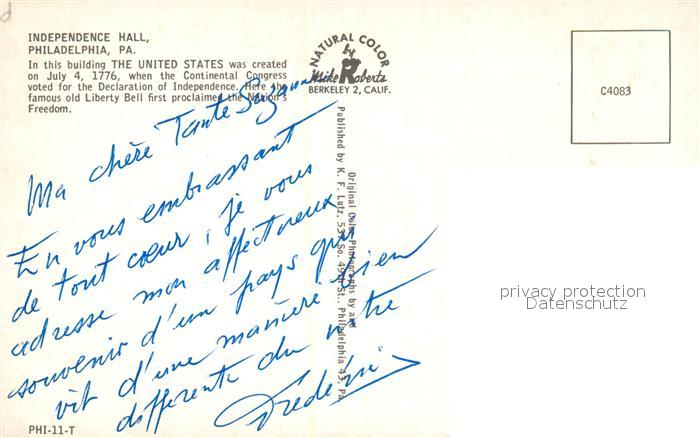 INDEPENDENCE HALL,
PHILADELPHIA, PA.
In this building THE UNITED STATES was created
on July 4, 1776, when the Continental Congress
voted for the Declaration of Independence. Here the
famous old Liberty Bell first proclaimed the Nation's
Freedom.
NATURAL COLOR
by
Mike Roberts
BERKELEY 2, CALIF.
C4083
Ma chère Tante Suzanne
En vous embrassant
de tout cœur, je vous
adresse mon affectueux
souvenir d'un pays qui
vit d'une manière bien
différente du nôtre
Frédéric
Original Color Photographs by and
Published by K. F. Lutz, So. 49th St., Philadelphia 43, Pa.
privacy protection
Datenschutz
PHI-11-T